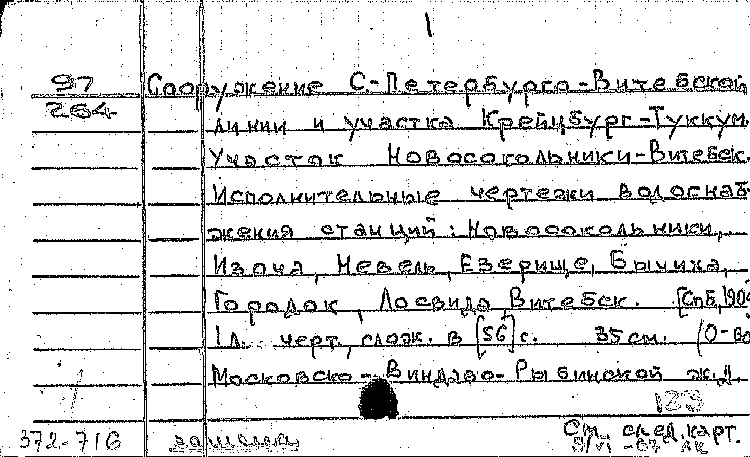 1
97 Сооружение С.-Петербурго-Витебской
264 линии и участка Крейцбург-Туккум
Участок Новосокольники-Витебск.
Исполнительные чертежи водоснаб-
жения станций: Новосокольники,
Изоча, Невель, Езерище, Бычиха,
Городок, Лосвида, Витебск. [Спб, 190
1 л. черт., слож. в [56] с. 35 см. (О-во
Московско-Виндаво-Рыбинской ж.д.
123
См. след. карт.
372-71б